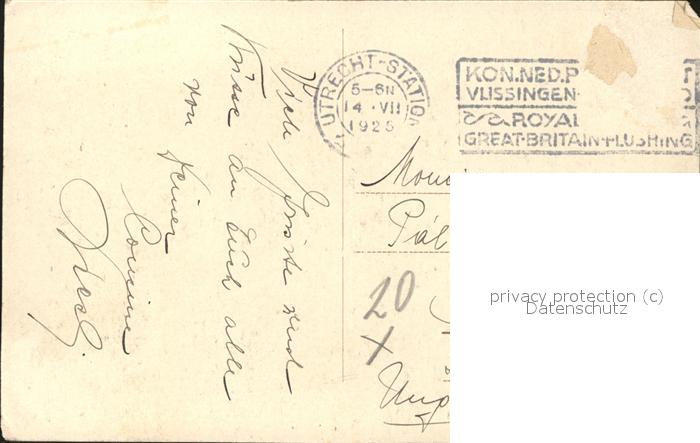 Viele Grüsse und
Küsse an Euch alle
von Deiner
Cousine
UTRECHT-STATION
5-6N
14 VII
1925
KON.NED.P
VLISSINGEN
ROYAL
GREAT-BRITAIN-FLUSHING
Pál
20
X
privacy protection (c)
Datenschutz